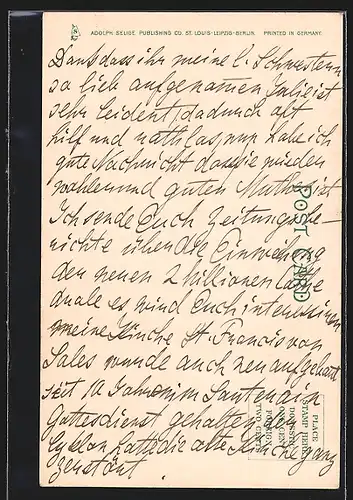 ADOLPH SELIGE PUBLISHING CO. ST. LOUIS-LEIPZIG-BERLIN. PRINTED IN GERMANY.
Dank dass ihr meine l. Schwestern
so lieb aufgenommen Juli ist
sehr leidend, dadurch oft
hilf und rathlos, nun habe ich
gute Nachricht dass sie wieder
wohler und guten Muthes ist
Ich sende Euch Zeitungsbe-
richte über die Einweihung
der neuen 2 Millionen Cathe
drale es wird Euch interessieren
meine Kirche St. Francis von
Sales wurde auch neu aufgebaut
seit 10 Jahren im Souterrain
Gottesdienst gehalten
Cyclon hatte die alte Kirche ganz
zerstört
POST CARD
PLACE
STAMP HERE
DOMESTIC
ONE CENT
FOREIGN
TWO CENTS